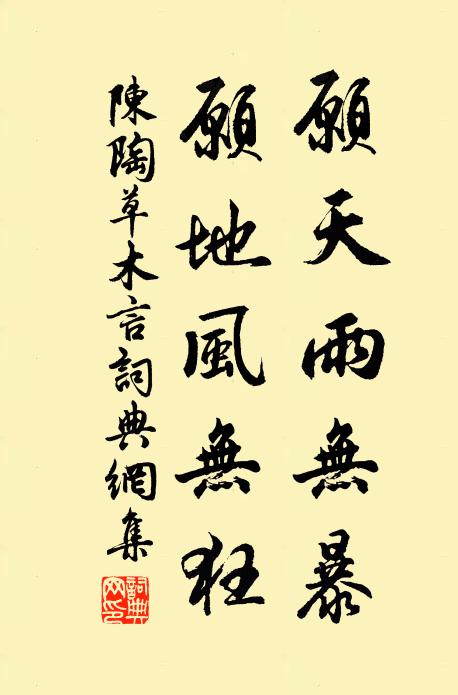 願天雨無暴
願地風無狂
陳陶草木言詞典網集
詞典網印